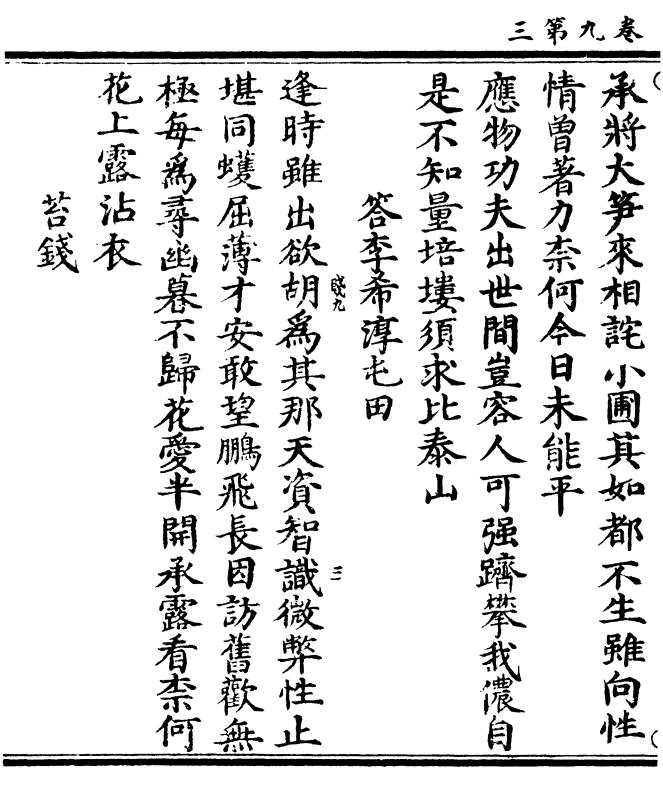 卷九第三
承將大笋來相詫小圃其如都不生雖向性
情曾著力柰何今日未能平
應物功夫出世間豈容人可强躋攀我儂自
是不知量培塿須求比泰山
答李希淳屯田
逢時雖出欲胡爲其那天資智識微弊性止
九
三
堪同蠖屈薄才安敢望鵬飛長因訪舊歡無
極每爲尋幽暮不歸花愛半開承露看柰何
花上露沾衣
苔錢